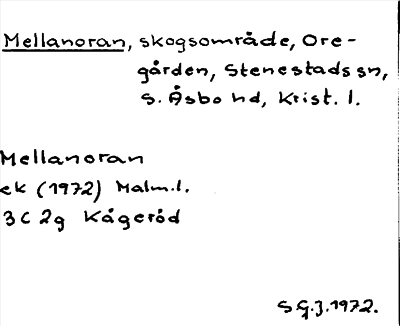 Mellanoran, skogsområde, Ore-
gården, Stenestads sn,
S. Åsbo hd, Krist. l.
Mellanoran
ek (1972) Malm.l.
3C 2g Kågeröd
S G.J. 1972.